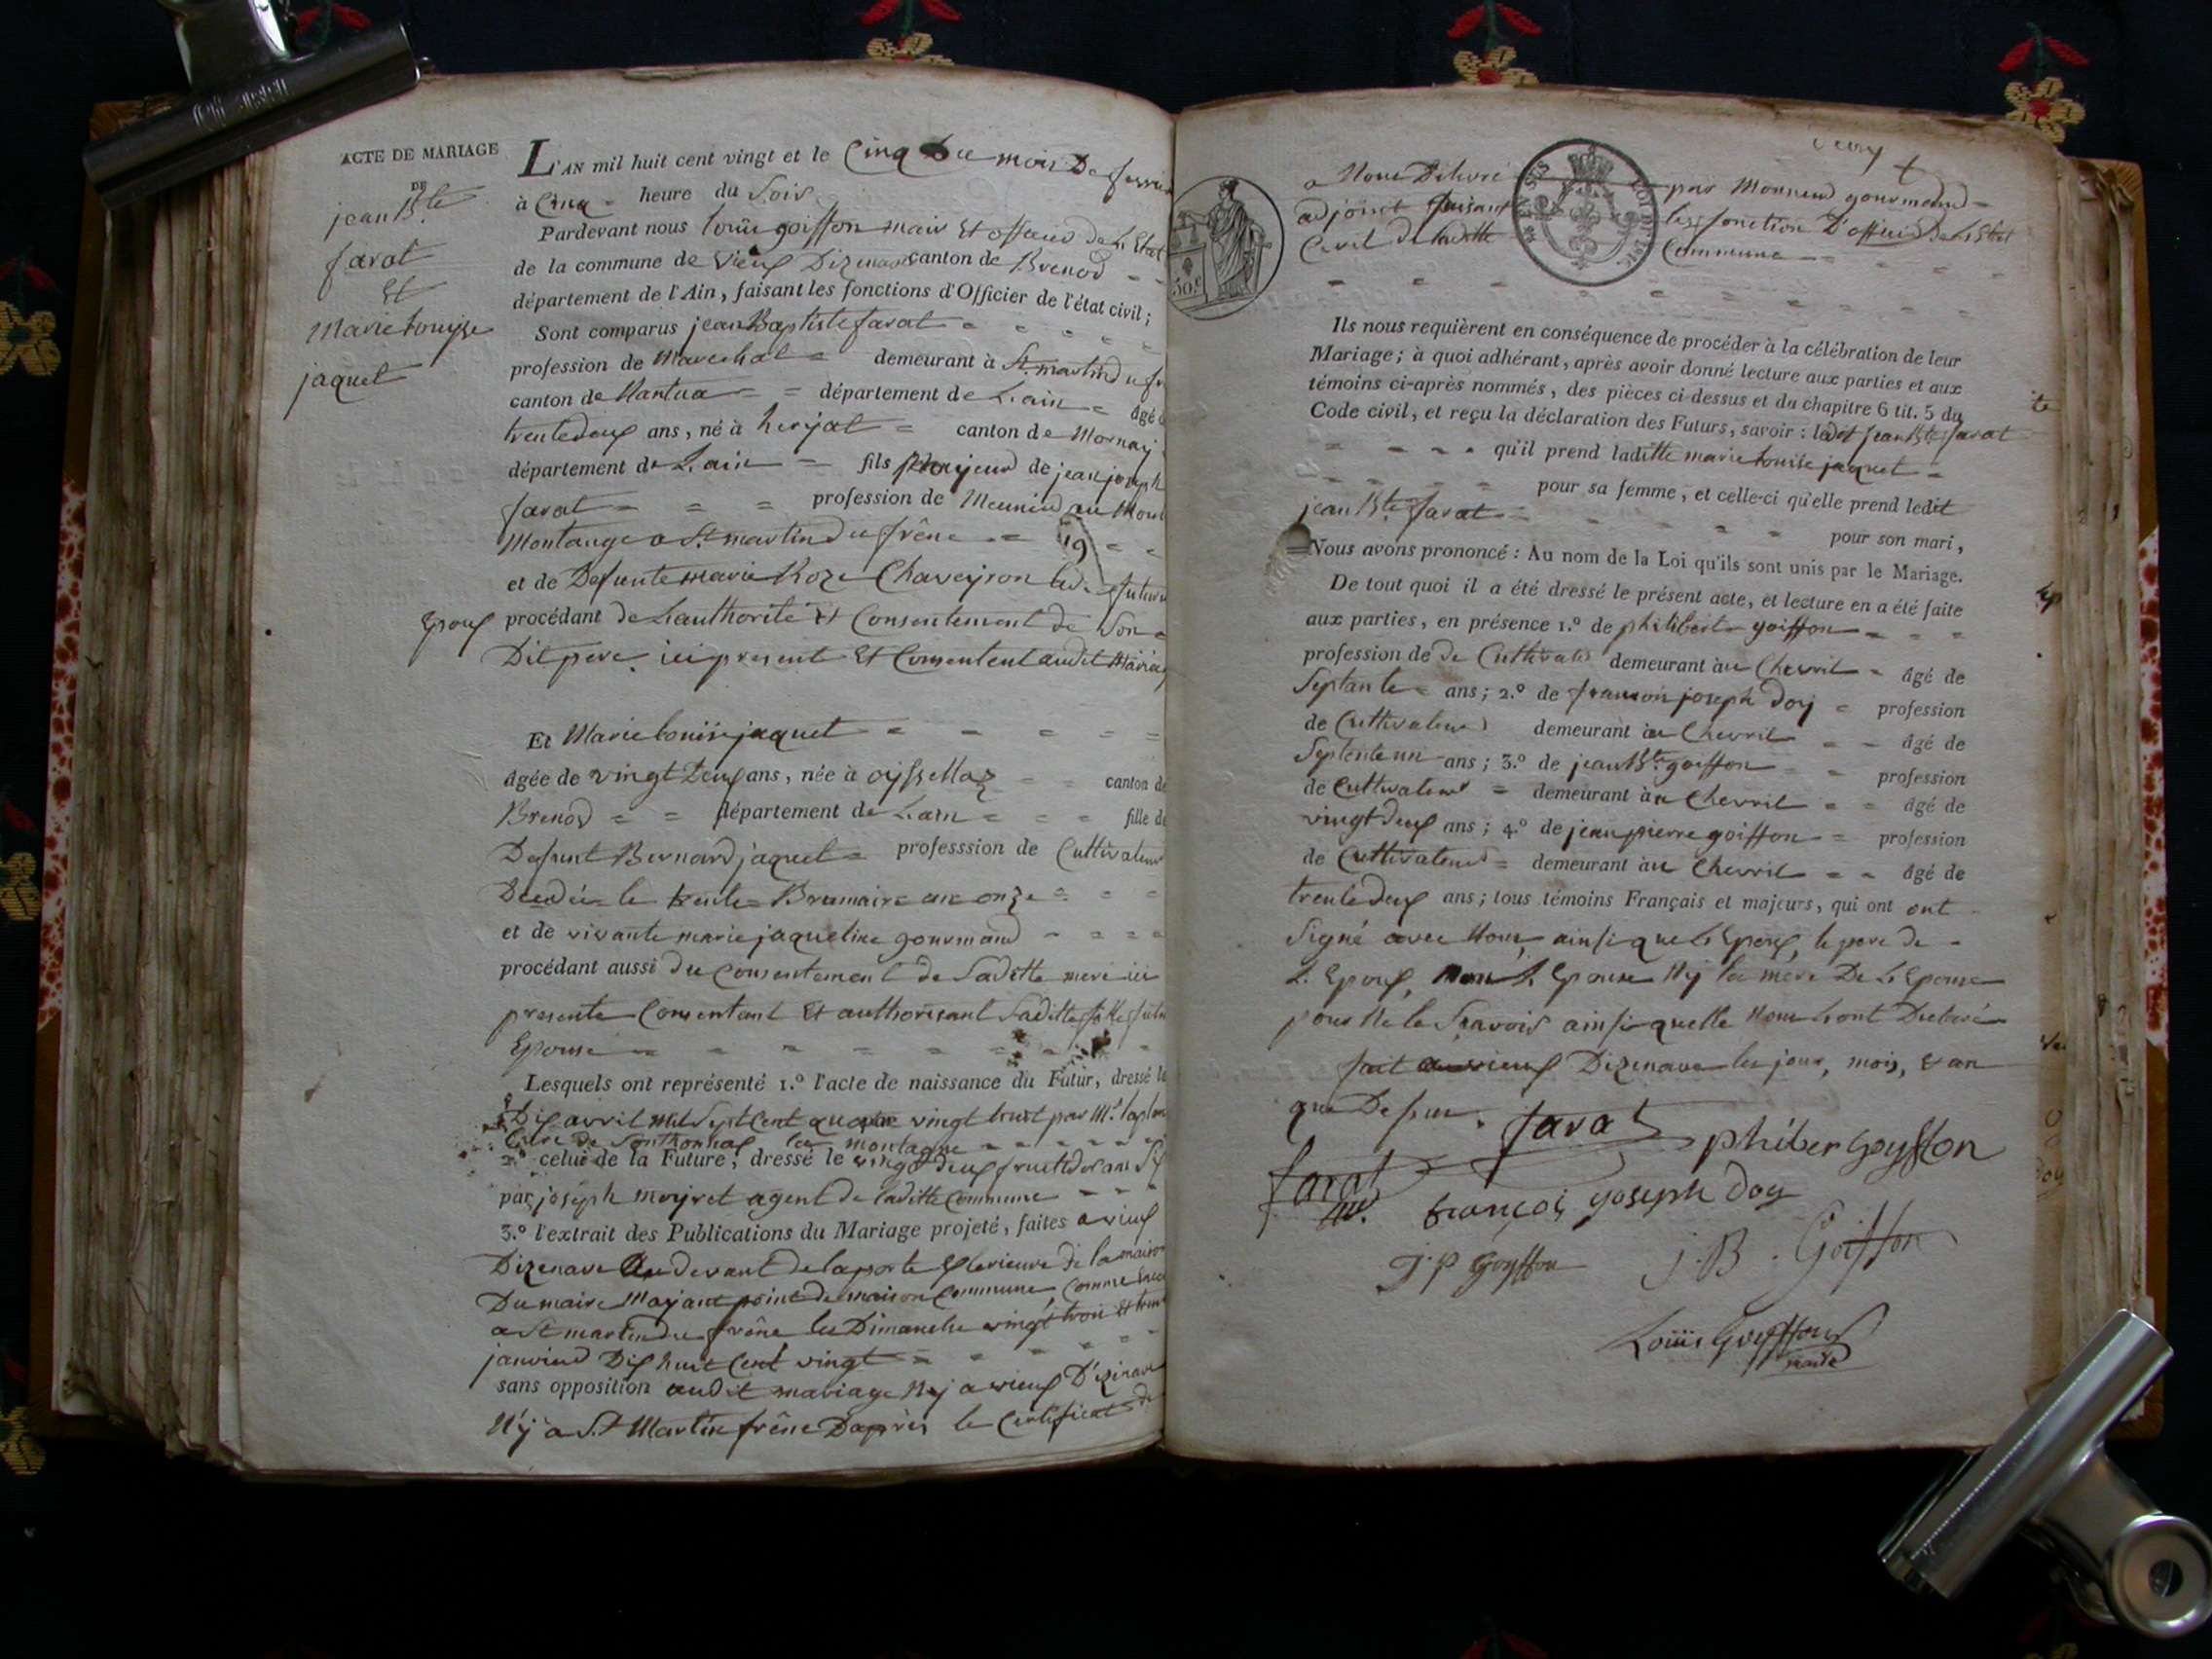 ACTE DE MARIAGE
DE
jean Bte
favat
Et
Marie Louise
jaquet
L'AN mil huit cent vingt et le Cinq Du mois De fevrier
à Cinq heure du Soir
Pardevant nous Louis goiffon maire Et officier de L'Etat
de la commune de Vieux Dizenave canton de Brenod
département de l'Ain, faisant les fonctions d'Officier de l'état civil;
Sont comparus jean Baptiste favat
profession de Marechal demeurant à St martin du fr
canton de Nantua département de L'ain âgé d
trente deux ans, né à heyriat canton de Mornay
département de L'ain fils majeur de jean joseph
favat profession de Meunier au Moul
Montange a St martin du frêne
19
et de Defunte marie Roze Chaveyron led. futur
Epoux procédant de L'authorité Et Consentement de Son
Dit pere ici present Et Consentent audit Mariag
Et Marie louise jaquet
âgée de vingt Deux ans, née à oyssellaz canton de
Brenod département de L'ain fille de
Defunt Bernard jaquet professsion de Cultivateur
Decedée le trente Brumaire an onze
et de vivante marie jaqueline gourmand
procédant aussi du Consentement de Saditte mere ici
presente Consentant Et authorisant Saditte fille futu
Epouse
Lesquels ont représenté 1.º l'acte de naissance du Futur, dressé le
Dix avril Mil Sept Cent quatre vingt huit par Mr
Curé de Sonthonnax la montagne
2.º celui de la Future, dressé le vingt deux fructidor an Six
par joseph meyret agent de laditte Commune
3.º l'extrait des Publications du Mariage projeté, faites a vieux
Dizenave Au devant de la porte Exterieure de la maison
Du maire N'ayant point de maison Commune, Comme
a St martin du frêne les Dimanche vingt trois Et trente
janvier Dix huit Cent vingt
sans opposition audit mariage Ny a vieux D'izenave
N'y a St Martin frêne Daprès le Certificat de
a Nous Delivré par Monsieur gourmand
adjoint faisant les fonction D'officier De L'Etat
Civil de laditte Commune
EN SUS
LOI DE 1816
50.c
Ils nous requièrent en conséquence de procéder à la célébration de leur
Mariage; à quoi adhérant, après avoir donné lecture aux parties et aux
témoins ci-après nommés, des pièces ci-dessus et du chapitre 6 tit. 5 du
Code civil, et reçu la déclaration des Futurs, savoir: ledit jean Bte favat
qu'il prend laditte marie Louise jaquet
pour sa femme, et celle-ci qu'elle prend ledit
jean Bte favat
pour son mari,
Nous avons prononcé: Au nom de la Loi qu'ils sont unis par le Mariage.
De tout quoi il a été dressé le présent acte, et lecture en a été faite
aux parties, en présence 1.º de philibert goiffon
profession de de Cultivateur demeurant àu Chevril âgé de
Septante ans; 2.º de francois joseph doy profession
de Cultivateur demeurant àu Chevril âgé de
Septente un ans; 3.º de jean Bte goiffon profession
de Cultivateur demeurant àu Chevril âgé de
vingt deux ans; 4.º de jean pierre goiffon profession
de Cultivateur demeurant àu Chevril âgé de
trente deux ans; tous témoins Français et majeurs, qui ont ont
Signé avec Nous, ainsi que L'Epoux, le pere de
L'Epoux, Non L'Epouse Ny la mere De L'Epouse
pour Ne le Scavoir ainsi quelle Nous L'ont Declaré
fait au vieux Dizenave les jour, mois, & an
que Dessus.
favat
phiber goyffon
favat
françois yoseph doy
J. P Goyffon
J. B. Goiffon
Loüis Goyffon
maire